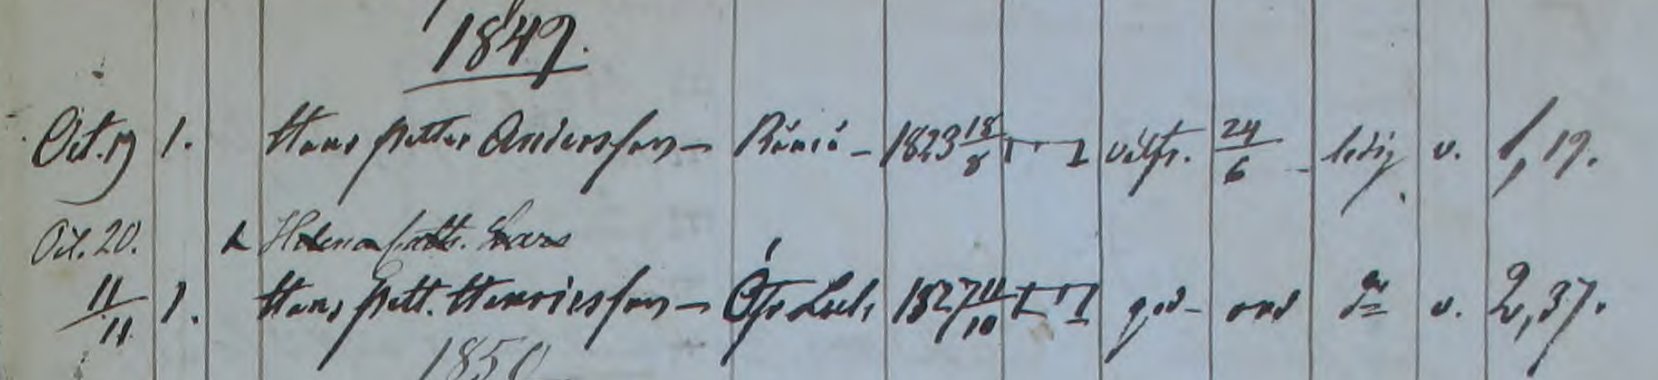 1849.
Oct. 17 1. Hans Petter Andersson – Råneå – 1823 18/8 välfr. 24/6 – ledig v. 1, 19.
Oct. 20. Helena Cath.
11/11 1. Hans Pett. Henricsson – Öfr Lule 1827 11/10 god – ord do v. 2, 37.
1850